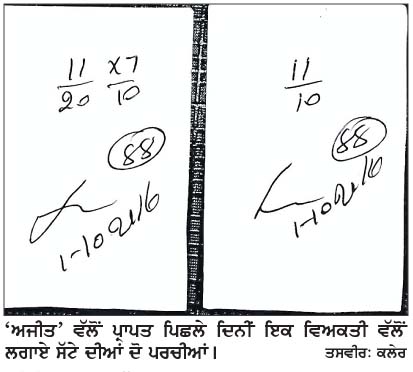 11 x7
20 10
88
1-10 2016
11
10
88
1-10 2016
‘ਅਜੀਤ’ ਵੱਲੋਂ ਪ੍ਰਾਪਤ ਪਿਛਲੇ ਦਿਨੀਂ ਇਕ ਵਿਅਕਤੀ ਵੱਲੋਂ
ਲਗਾਏ ਸੱਟੇ ਦੀਆਂ ਦੋ ਪਰਚੀਆਂ। ਤਸਵੀਰ: ਕਲੇਰ